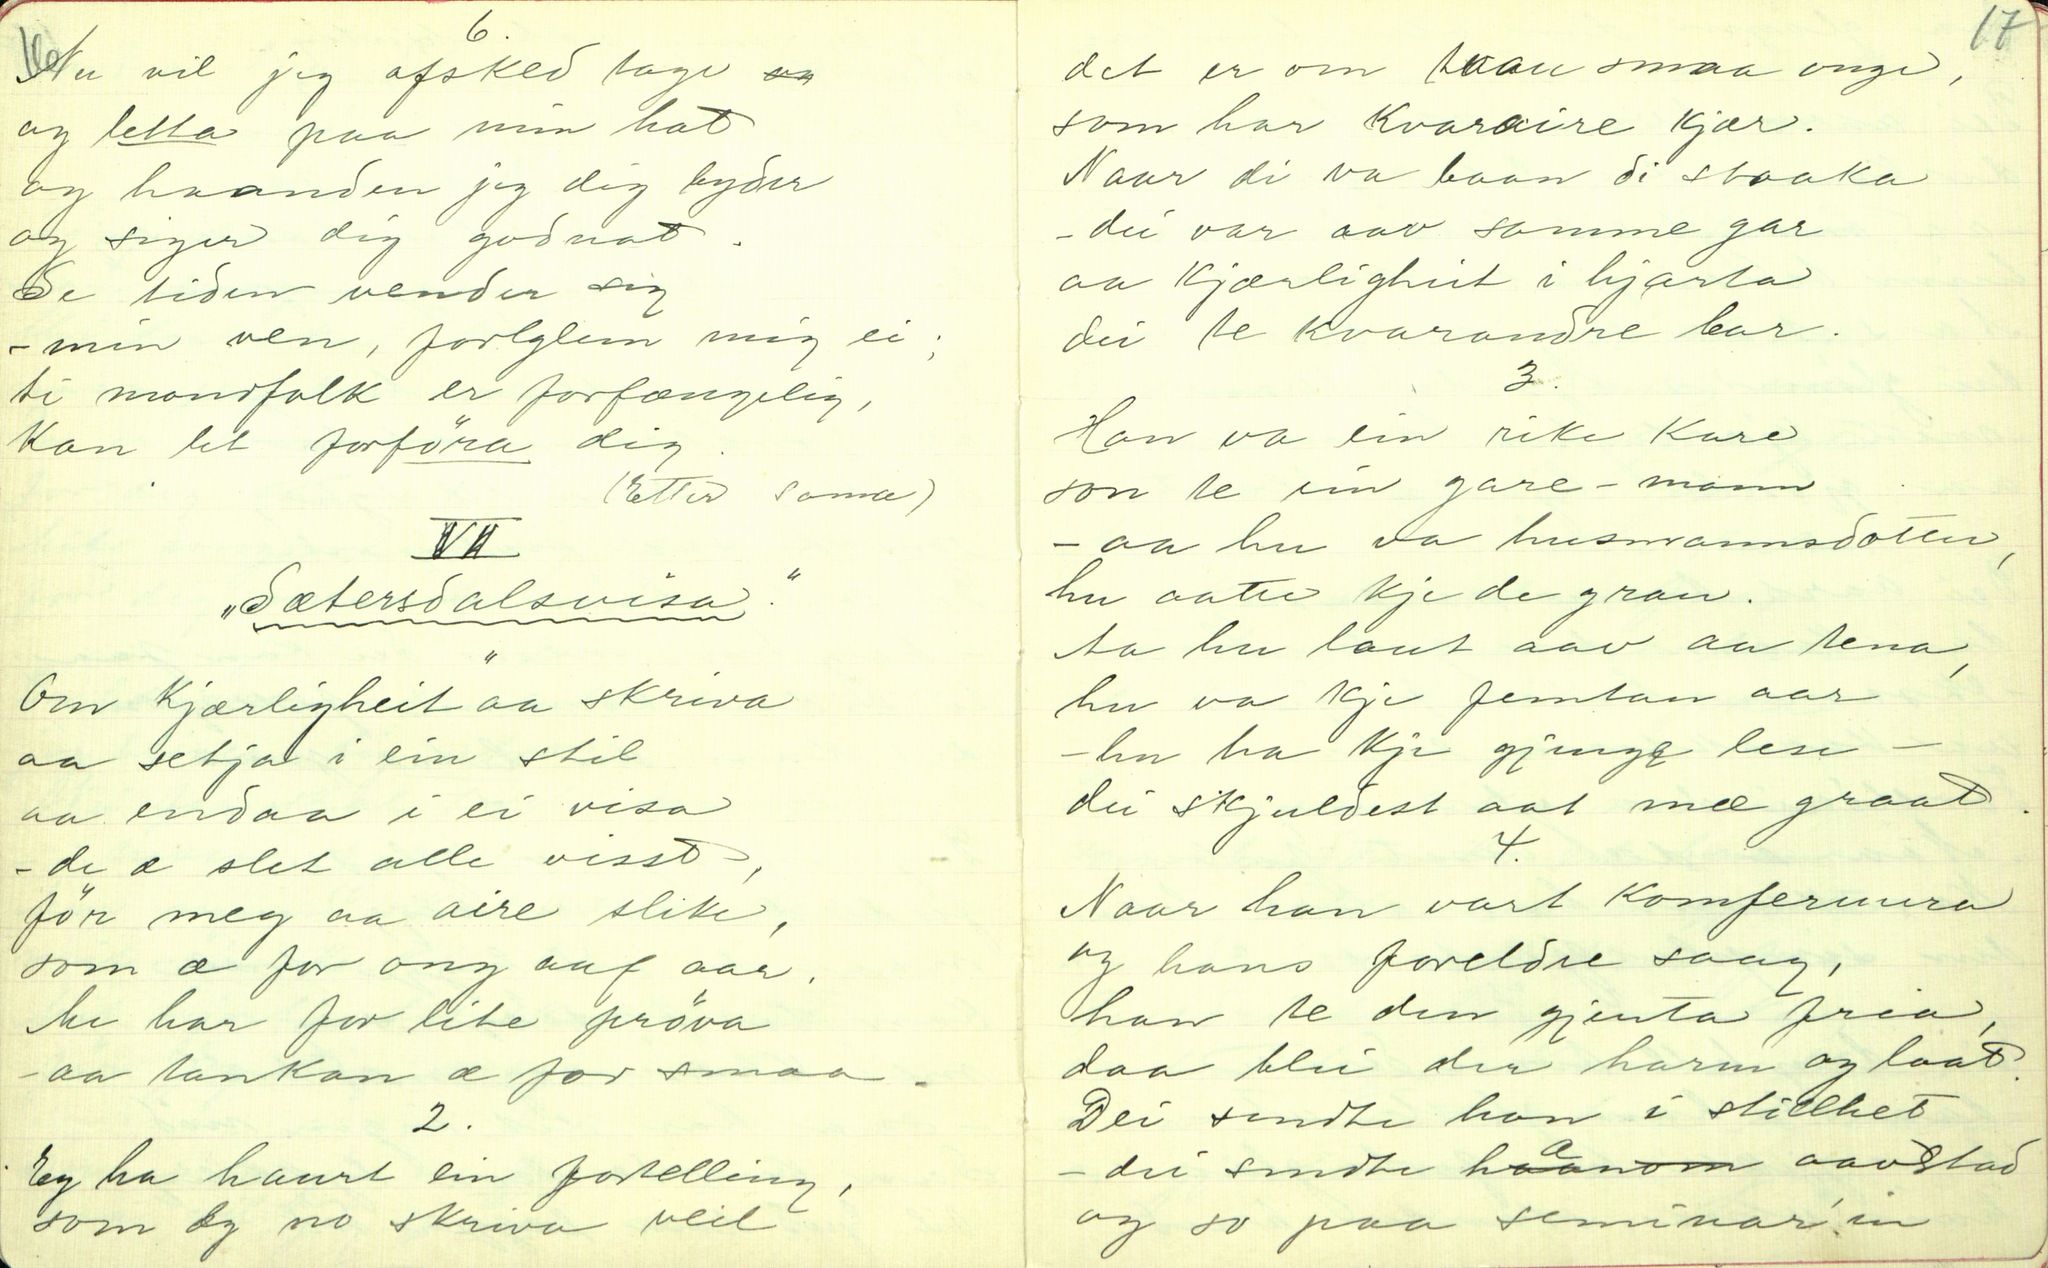 16
6.
Nu vil jeg afsked tage
og letta paa min hat
og haanden jeg dig byder
og siger dig godnat.
Se tiden vender sig
- min ven, forglem mig ei;
ti mandfolk er forfængelig,
kan let forföra dig.
(Etter sama)
VII
„Sætersdalsvisa“.
Om kjærligheit aa skriva
aa setja i ein stil
aa endaa i ei visa
- de æ slet alle visst,
för meg aa aire slike,
som æ for ong aaf aar.
Me har for lite pröva
- aa tankan æ for smaa -
2.
Eg ha haurt ein fortelling,
som eg no skriva veil
17
det er om tvau smaa onge,
som har kvaraire kjær.
Naar di va baan di staaka
- dei var aav samme gar
aa kjærligheit i hjarta
dei te kvarandre bar.
3.
Han va ein rike kare
son te ein gare-mann
- aa hu va husmannsdotter,
hu aatte kje de gran.
Ta hu laut aav aa tena,
hu va kje femtan aar
- hu ha kje gjenge lese -
dei skjuldest aat mæ graat.
4.
Naar han vart komfermera
og hans foreldre saag,
han te den gjenta fria,
daa blei der harm og laat.
Dei sendte han i stillhet
- dei sendte haanom a aavstad
og so paa seminar'in